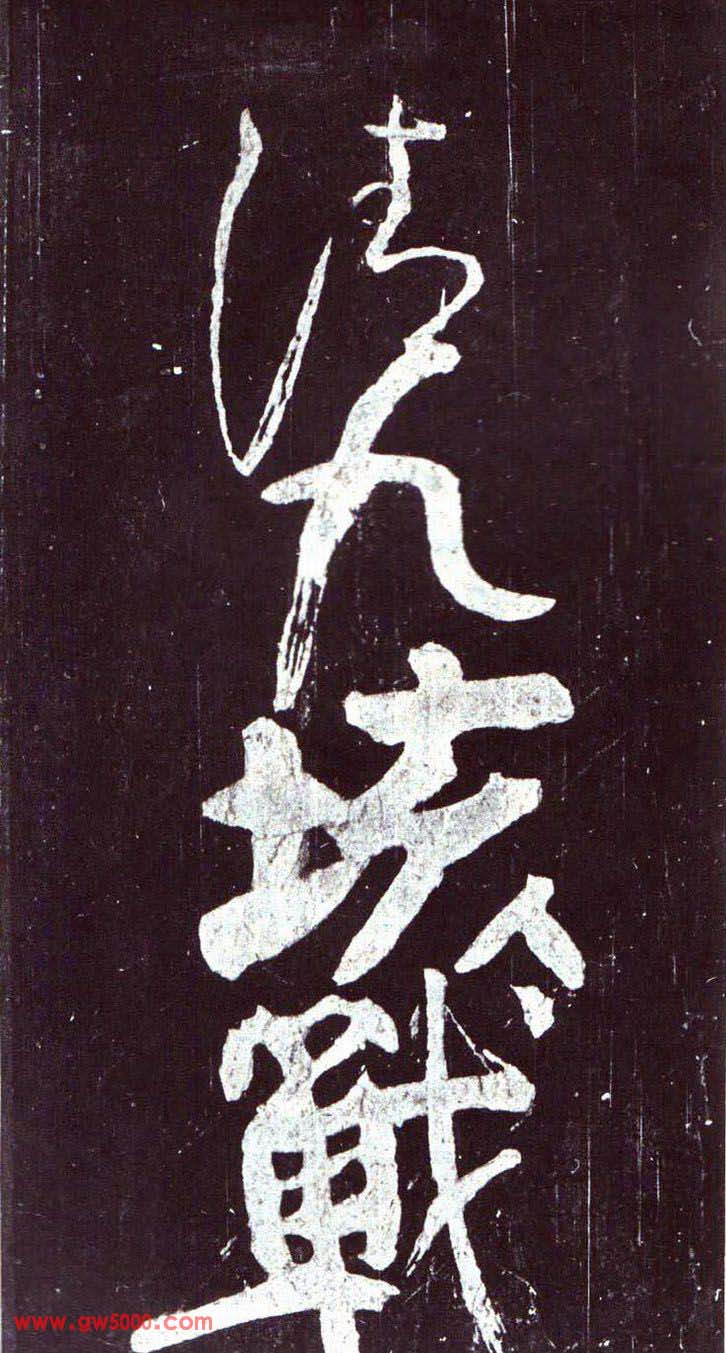 清九垓戰
www.gw5000.com